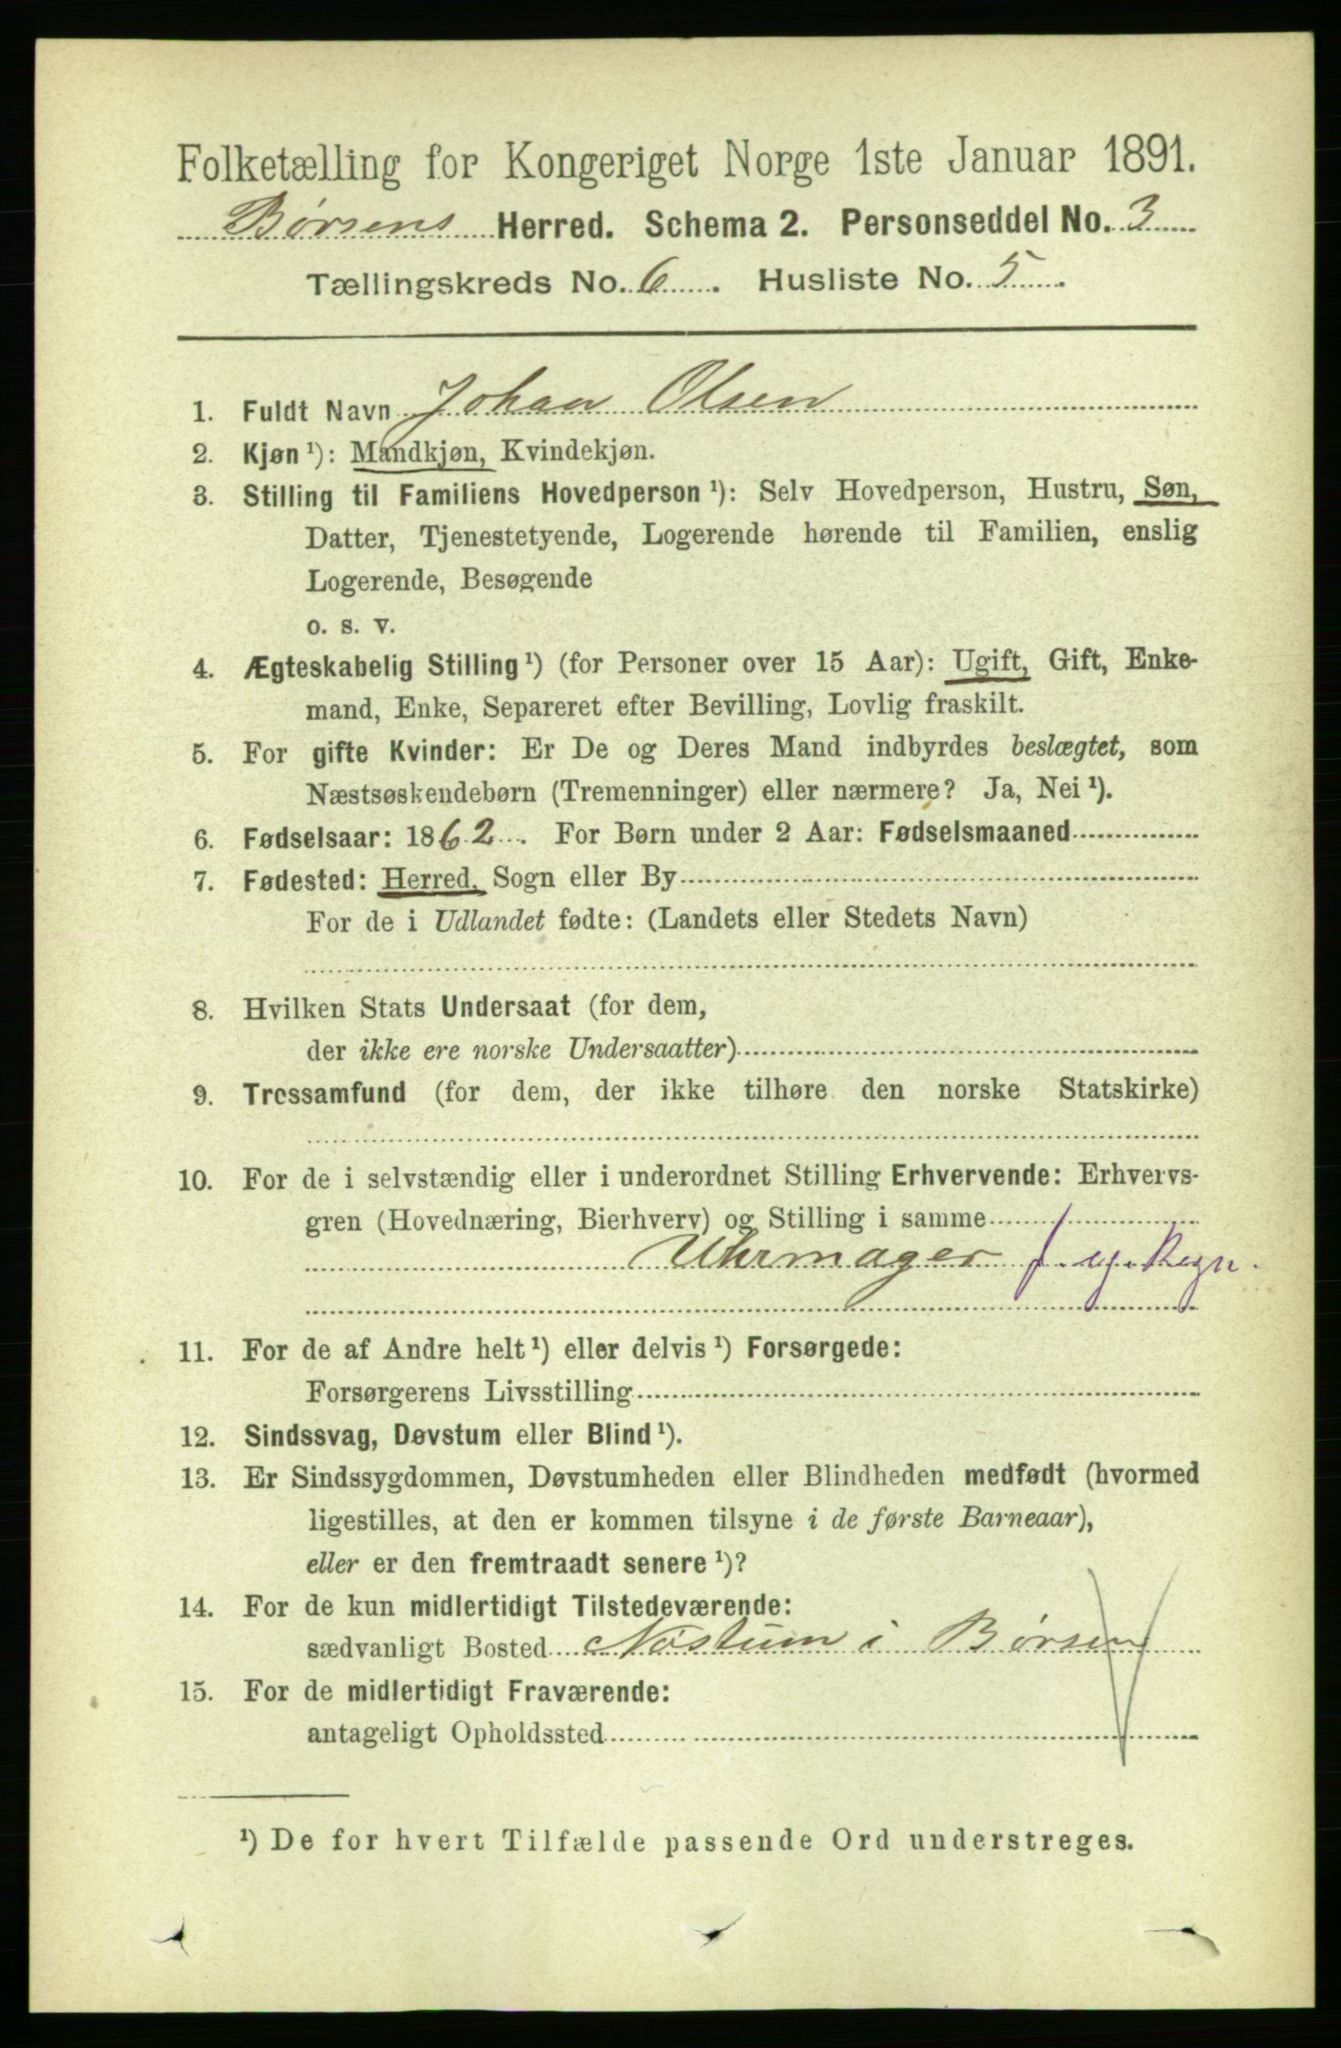 Folketælling for Kongeriget Norge 1ste Januar 1891.
Børsens Herred. Schema 2. Personseddel No. 3
Tællingskreds No. 6. Husliste No. 5.
1. Fuldt Navn Johan Olsen
2. Kjøn ¹): Mandkjøn, Kvindekjøn.
3. Stilling til Familiens Hovedperson ¹): Selv Hovedperson, Hustru, Søn,
Datter, Tjenestetyende, Logerende hørende til Familien, enslig
Logerende, Besøgende
o. s. v.
4. Ægteskabelig Stilling ¹) (for Personer over 15 Aar): Ugift, Gift, Enke-
mand, Enke, Separeret efter Bevilling, Lovlig fraskilt.
5. For gifte Kvinder: Er De og Deres Mand indbyrdes beslægtet, som
Næstsøskendebørn (Tremenninger) eller nærmere? Ja, Nei ¹).
6. Fødselsaar: 1862. For Børn under 2 Aar: Fødselsmaaned
7. Fødested: Herred, Sogn eller By
For de i Udlandet fødte: (Landets eller Stedets Navn)
8. Hvilken Stats Undersaat (for dem,
der ikke ere norske Undersaatter)
9. Trossamfund (for dem, der ikke tilhøre den norske Statskirke)
10. For de i selvstændig eller i underordnet Stilling Erhvervende: Erhvervs-
gren (Hovednæring, Bierhverv) og Stilling i samme
Uhrmager f. eg. Regn.
11. For de af Andre helt ¹) eller delvis ¹) Forsørgede:
Forsørgerens Livsstilling
12. Sindssvag, Døvstum eller Blind ¹).
13. Er Sindssygdommen, Døvstumheden eller Blindheden medfødt (hvormed
ligestilles, at den er kommen tilsyne i de første Barneaar),
eller er den fremtraadt senere ¹)?
14. For de kun midlertidigt Tilstedeværende:
sædvanligt Bosted Nøstum i Børsen
15. For de midlertidigt Fraværende:
antageligt Opholdssted
¹) De for hvert Tilfælde passende Ord understreges.